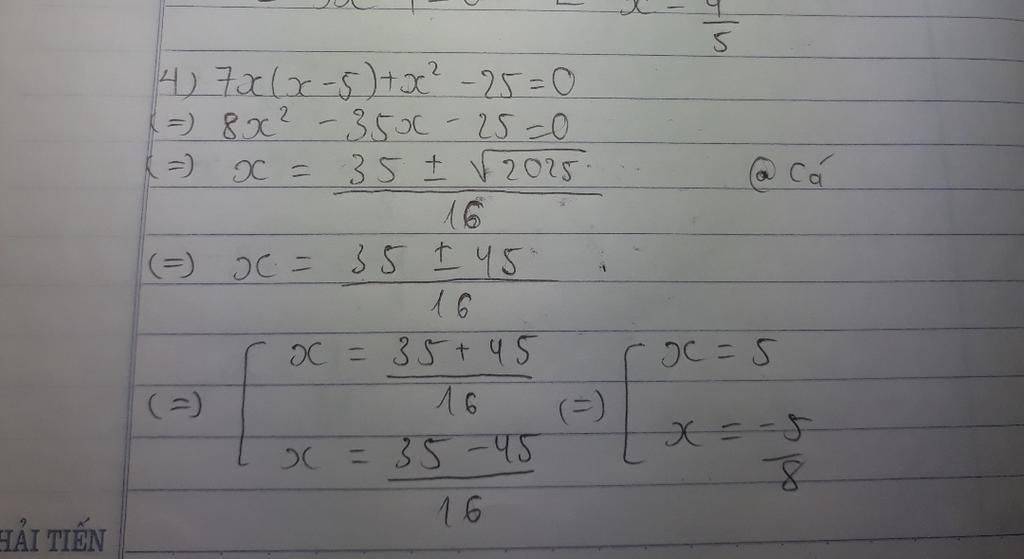 x = 4/5
4) 7x(x-5)+x² -25=0
(=) 8x² - 35x - 25=0
(=) x = (35 ± √2025)/16 @ Cá
(=) x = (35 ± 45)/16
(=) [ x = (35 + 45)/16 (=) [ x = 5
x = (35 - 45)/16 x = -5/8
HẢI TIẾN